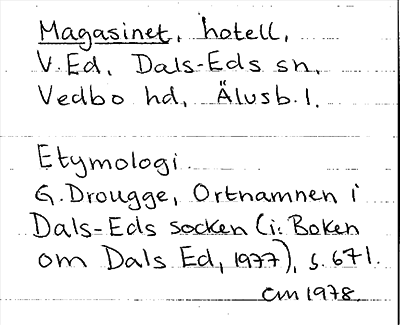 Magasinet, hotell,
V. Ed, Dals-Eds sn,
Vedbo hd, Älvsb. l.
Etymologi
G. Drougge, Ortnamnen i
Dals-Eds socken (i: Boken
om Dals Ed, 1977), s. 671.
CM 1978.